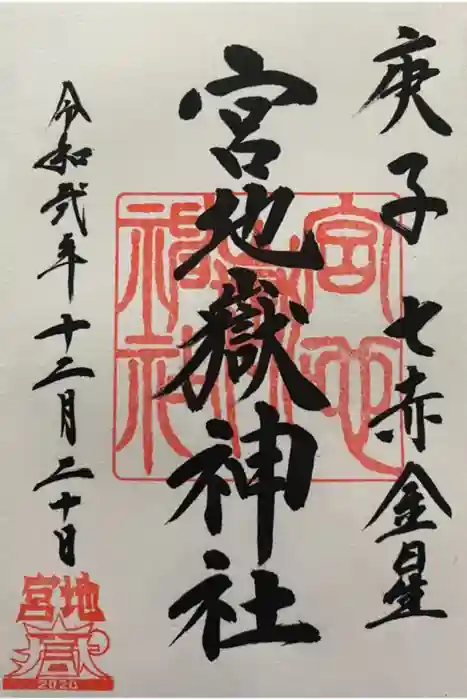 庚子 七赤金星
宮地嶽神社
令和弐年十二月二十日
宮地嶽神社
宮地
嶽
2020